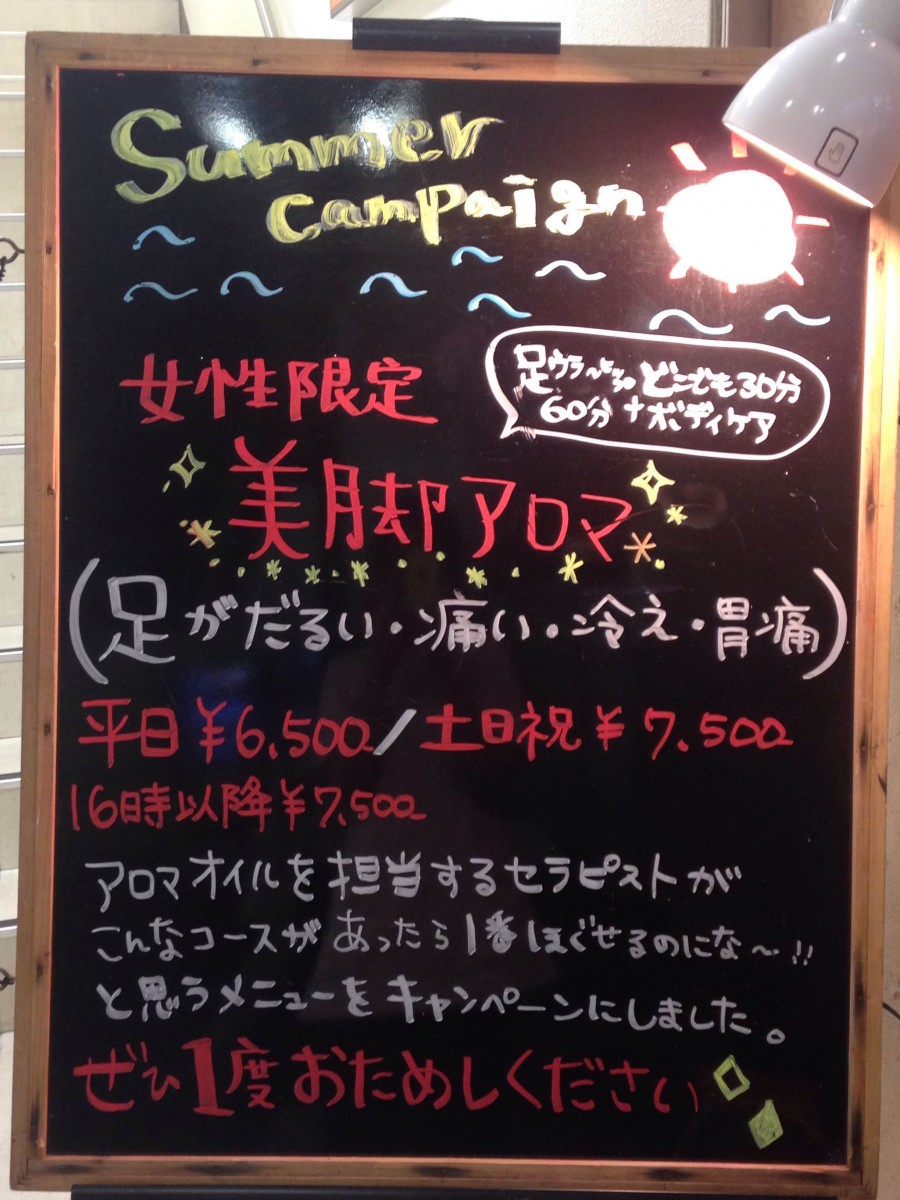 Summer
campaign
女性限定
足ウラ〜ヒップ どこでも30分
60分 + ボディケア
美脚アロマ
(足がだるい・痛い・冷え・胃痛)
平日¥6,500/土日祝¥7,500
16時以降¥7,500
アロマオイルを担当するセラピストが
こんなコースがあったら1番ほぐせるのにな〜!!
と思うメニューをキャンペーンにしました。
ぜひ1度おためしください